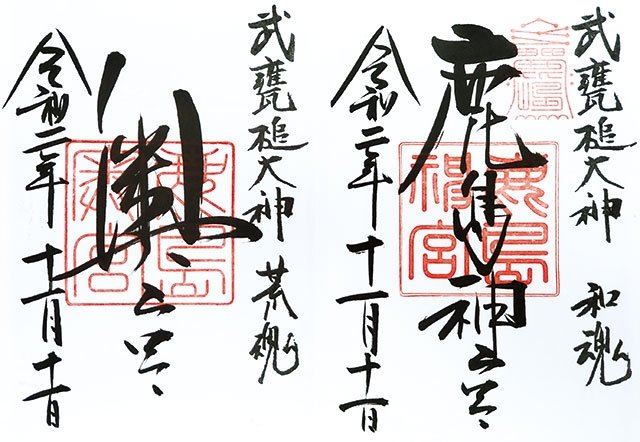 武甕槌大神 和魂
鹿島神宮
鹿島
神宮
令和二年十一月十一日
武甕槌大神 荒魂
奥宮
鹿島
奥宮
令和二年十一月十一日